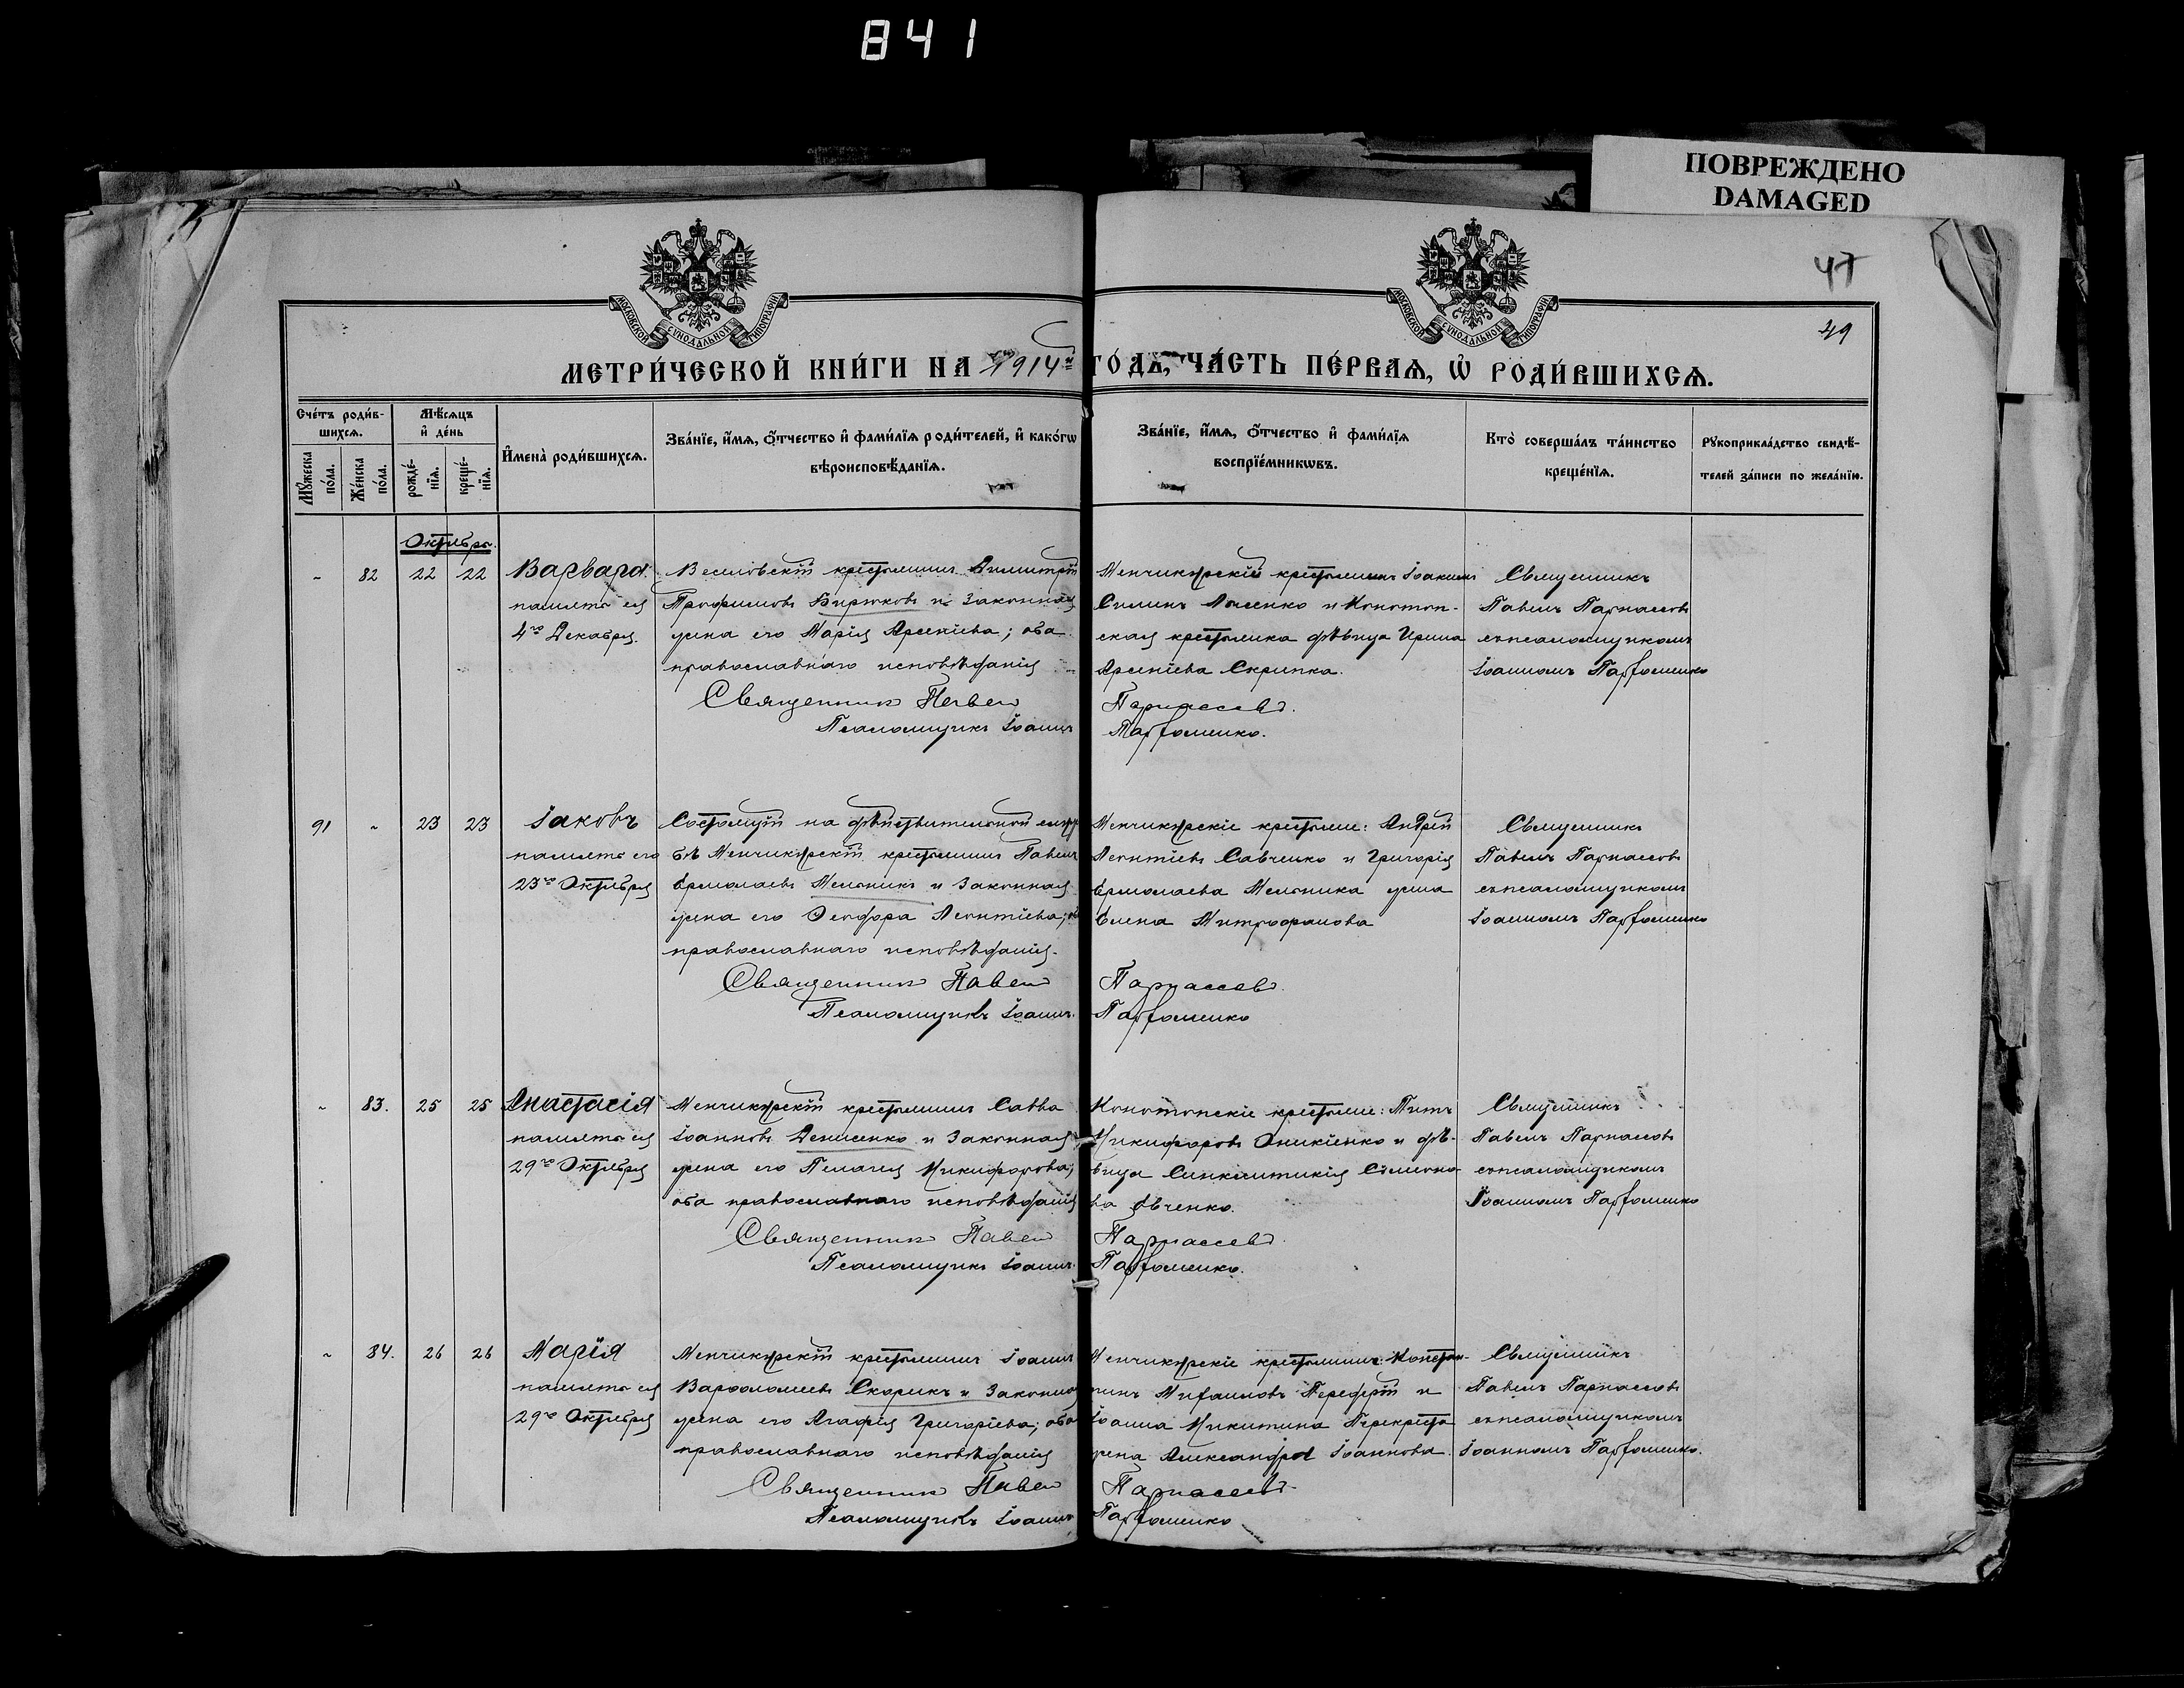 841
ПОВРЕЖДЕНО
DAMAGED
47
49
МОСКОВСКОЙ СѴНОДАЛЬНОЙ ТИПОГРАФІИ
МОСКОВСКОЙ СѴНОДАЛЬНОЙ ТИПОГРАФІИ
МЕТРИ́ЧЕСКОЙ КНИ́ГИ НА 1914й ГО́ДЪ, ЧА́СТЬ ПЕ́РВАѦ, Ѡ҆ РОДИ́ВШИХСѦ.
Сче́тъ роди́в-
шихсѧ.
Мѣ́сѧцъ
и҆ де́нь
Мꙋ́жеска по́ла.
Же́нска по́ла.
рожде́-
нїѧ.
креще́-
нїѧ.
И҆мена̀ роди́вшихсѧ.
Зва́нїе, и҆́мѧ, ѻ҆́тчество и҆ фами́лїѧ роди́телей, и҆ како́гѡ
вѣроисповѣ́данїѧ.
Зва́нїе, и҆́мѧ, ѻ҆́тчество и҆ фами́лїѧ
воспрїе́мникѡвъ.
Кто̀ соверша́лъ та́инство
креще́нїѧ.
Рꙋкоприкла́дство свидѣ́-
телей за́писи по жела́нїю.
Октябрь.
82 22 22
Варвара
память ея
4го Декабря.
Веселовскій крестьянинъ Димитрій
Трофимовъ Бирюковъ и законная
жена его Марія Арсеніева; оба
православнаго исповѣданія
Священникъ Павел
Псаломщикъ Іоаннъ
Менчикурскій крестьянинъ Іоакимъ
Силинъ Лысенко и Конотоп-
ская крестьянка дѣвица Ирина
Арсеніева Скрипка.
Парнассовъ.
Парфоменко.
Священникъ
Павелъ Парнассовъ
съ псаломщикомъ
Іоанномъ Парфоменко
91 23 23
Іаковъ
память его
23го Октября
Состоящій на дѣйствительной служ
бѣ Менчикурскій крестьянинъ Павелъ
Ермолаевъ Мельникъ и законная
жена его Феодора Леонтіева;
православнаго исповѣданія.
Священникъ Павел
Псаломщикъ Іоаннъ
Менчикурскіе крестьяне: Андрей
Леонтіевъ Савченко и Григорія
Ермолаева Мельника жена
Елена Митрофанова
Парнассовъ.
Парфоменко
Священникъ
Павелъ Парнассовъ
съ псаломщикомъ
Іоанномъ Парфоменко
83. 25 25
Анастасія
память ея
29го Октября
Менчикурскій крестьянинъ Савва
Іоанновъ Денисенко и законная
жена его Пелагея Никифорова;
оба православнаго исповѣданія
Священникъ Павел
Псаломщикъ Іоаннъ
Конотопскіе крестьяне: Титъ
Никифоровъ Оникіенко и дѣ-
вица Синклитикія Симеоно-
ва Овченко.
Парнассовъ.
Парфоменко.
Священникъ
Павелъ Парнассовъ
съ псаломщикомъ
Іоанномъ Парфоменко
84. 26 26
Марія
память ея
29го Октября
Менчикурскій крестьянинъ Іоаннъ
Варфоломеевъ Скорикъ и законная
жена его Агафія Григоріева; оба
православнаго исповѣданія
Священникъ Павел
Псаломщикъ Іоаннъ
Менчикурскіе крестьянинъ: Констан-
тинъ Михаиловъ Передерій и
Іоанна Никитина Перекреста
жена Александра Іоаннова.
Парнассовъ.
Парфоменко
Священникъ
Павелъ Парнассовъ
съ псаломщикомъ
Іоанномъ Парфоменко.